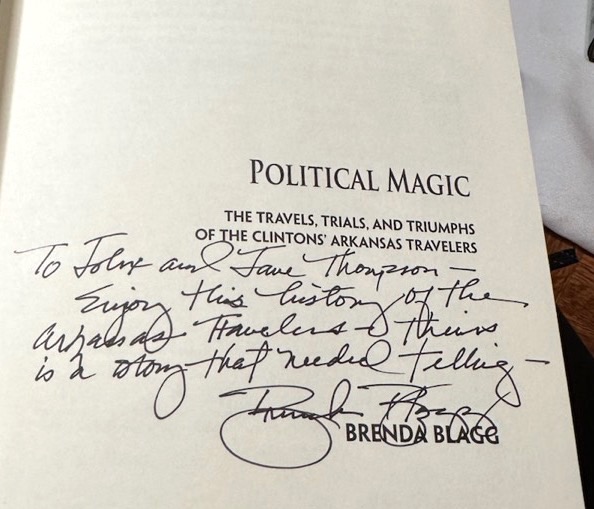 POLITICAL MAGIC
THE TRAVELS, TRIALS, AND TRIUMPHS
OF THE CLINTONS' ARKANSAS TRAVELERS
To John and Jane Thompson –
Enjoy this history of the
Arkansas Travelers – Theirs
is a story that needed telling –
Brenda Blagg
BRENDA BLAGG